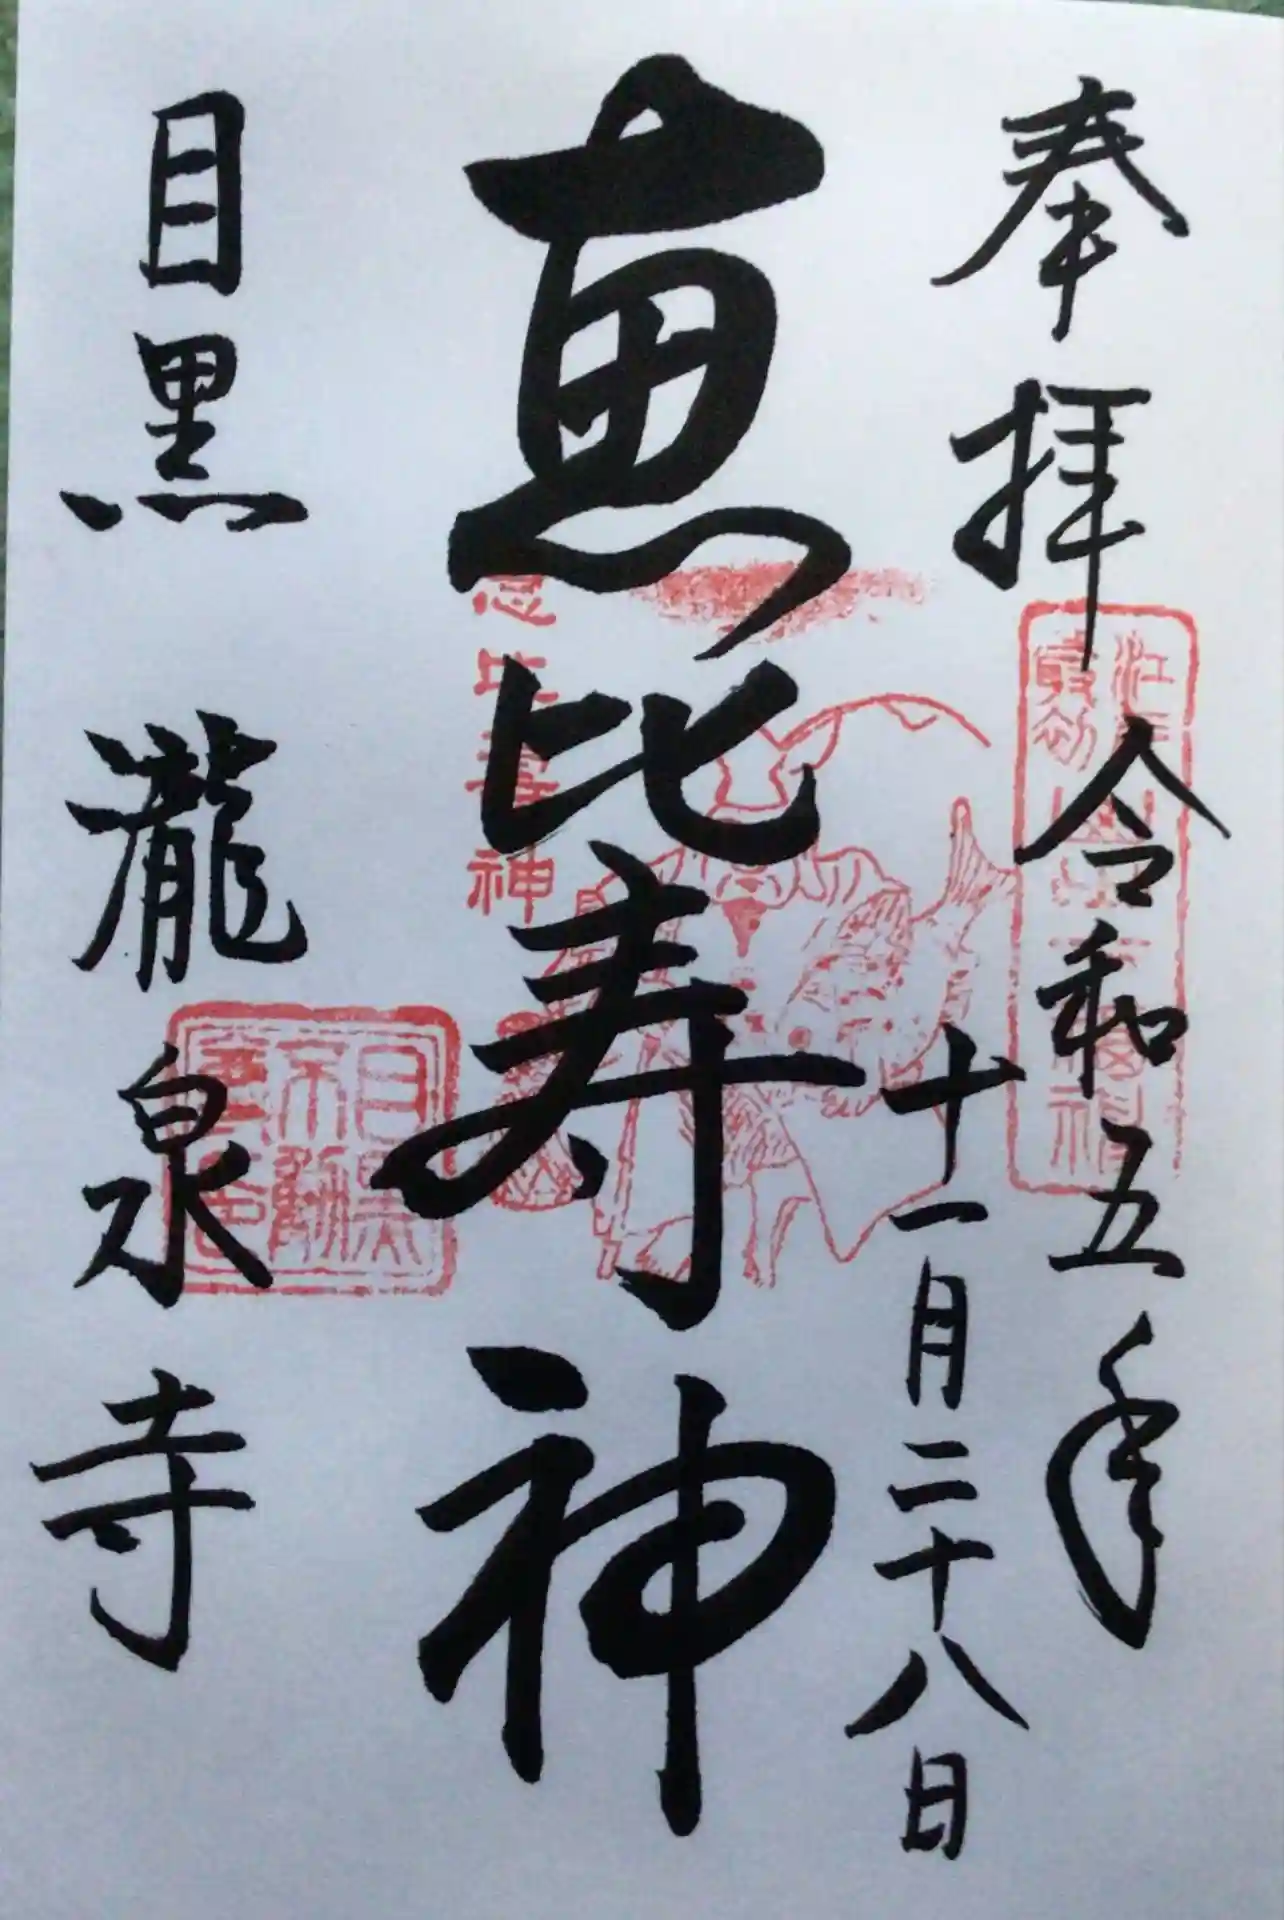 奉拝
令和五年
十一月二十八日
恵比寿神
恵比寿神
目黒
不動
目黒 瀧泉寺